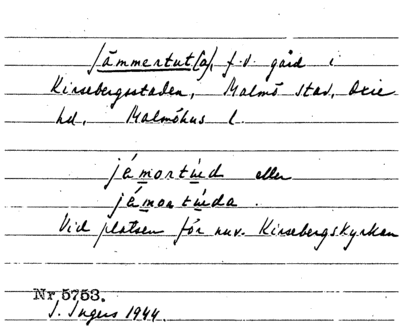 Jämmertut(a), f.d. gård i
Kirsebergsstaden, Malmö stad, Oxie
hd, Malmöhus l.
jämortùd eller
jämortùda.
Vid platsen för nuv. Kirsebergskyrkan
Nr 5753.
I. Ingers 1944.